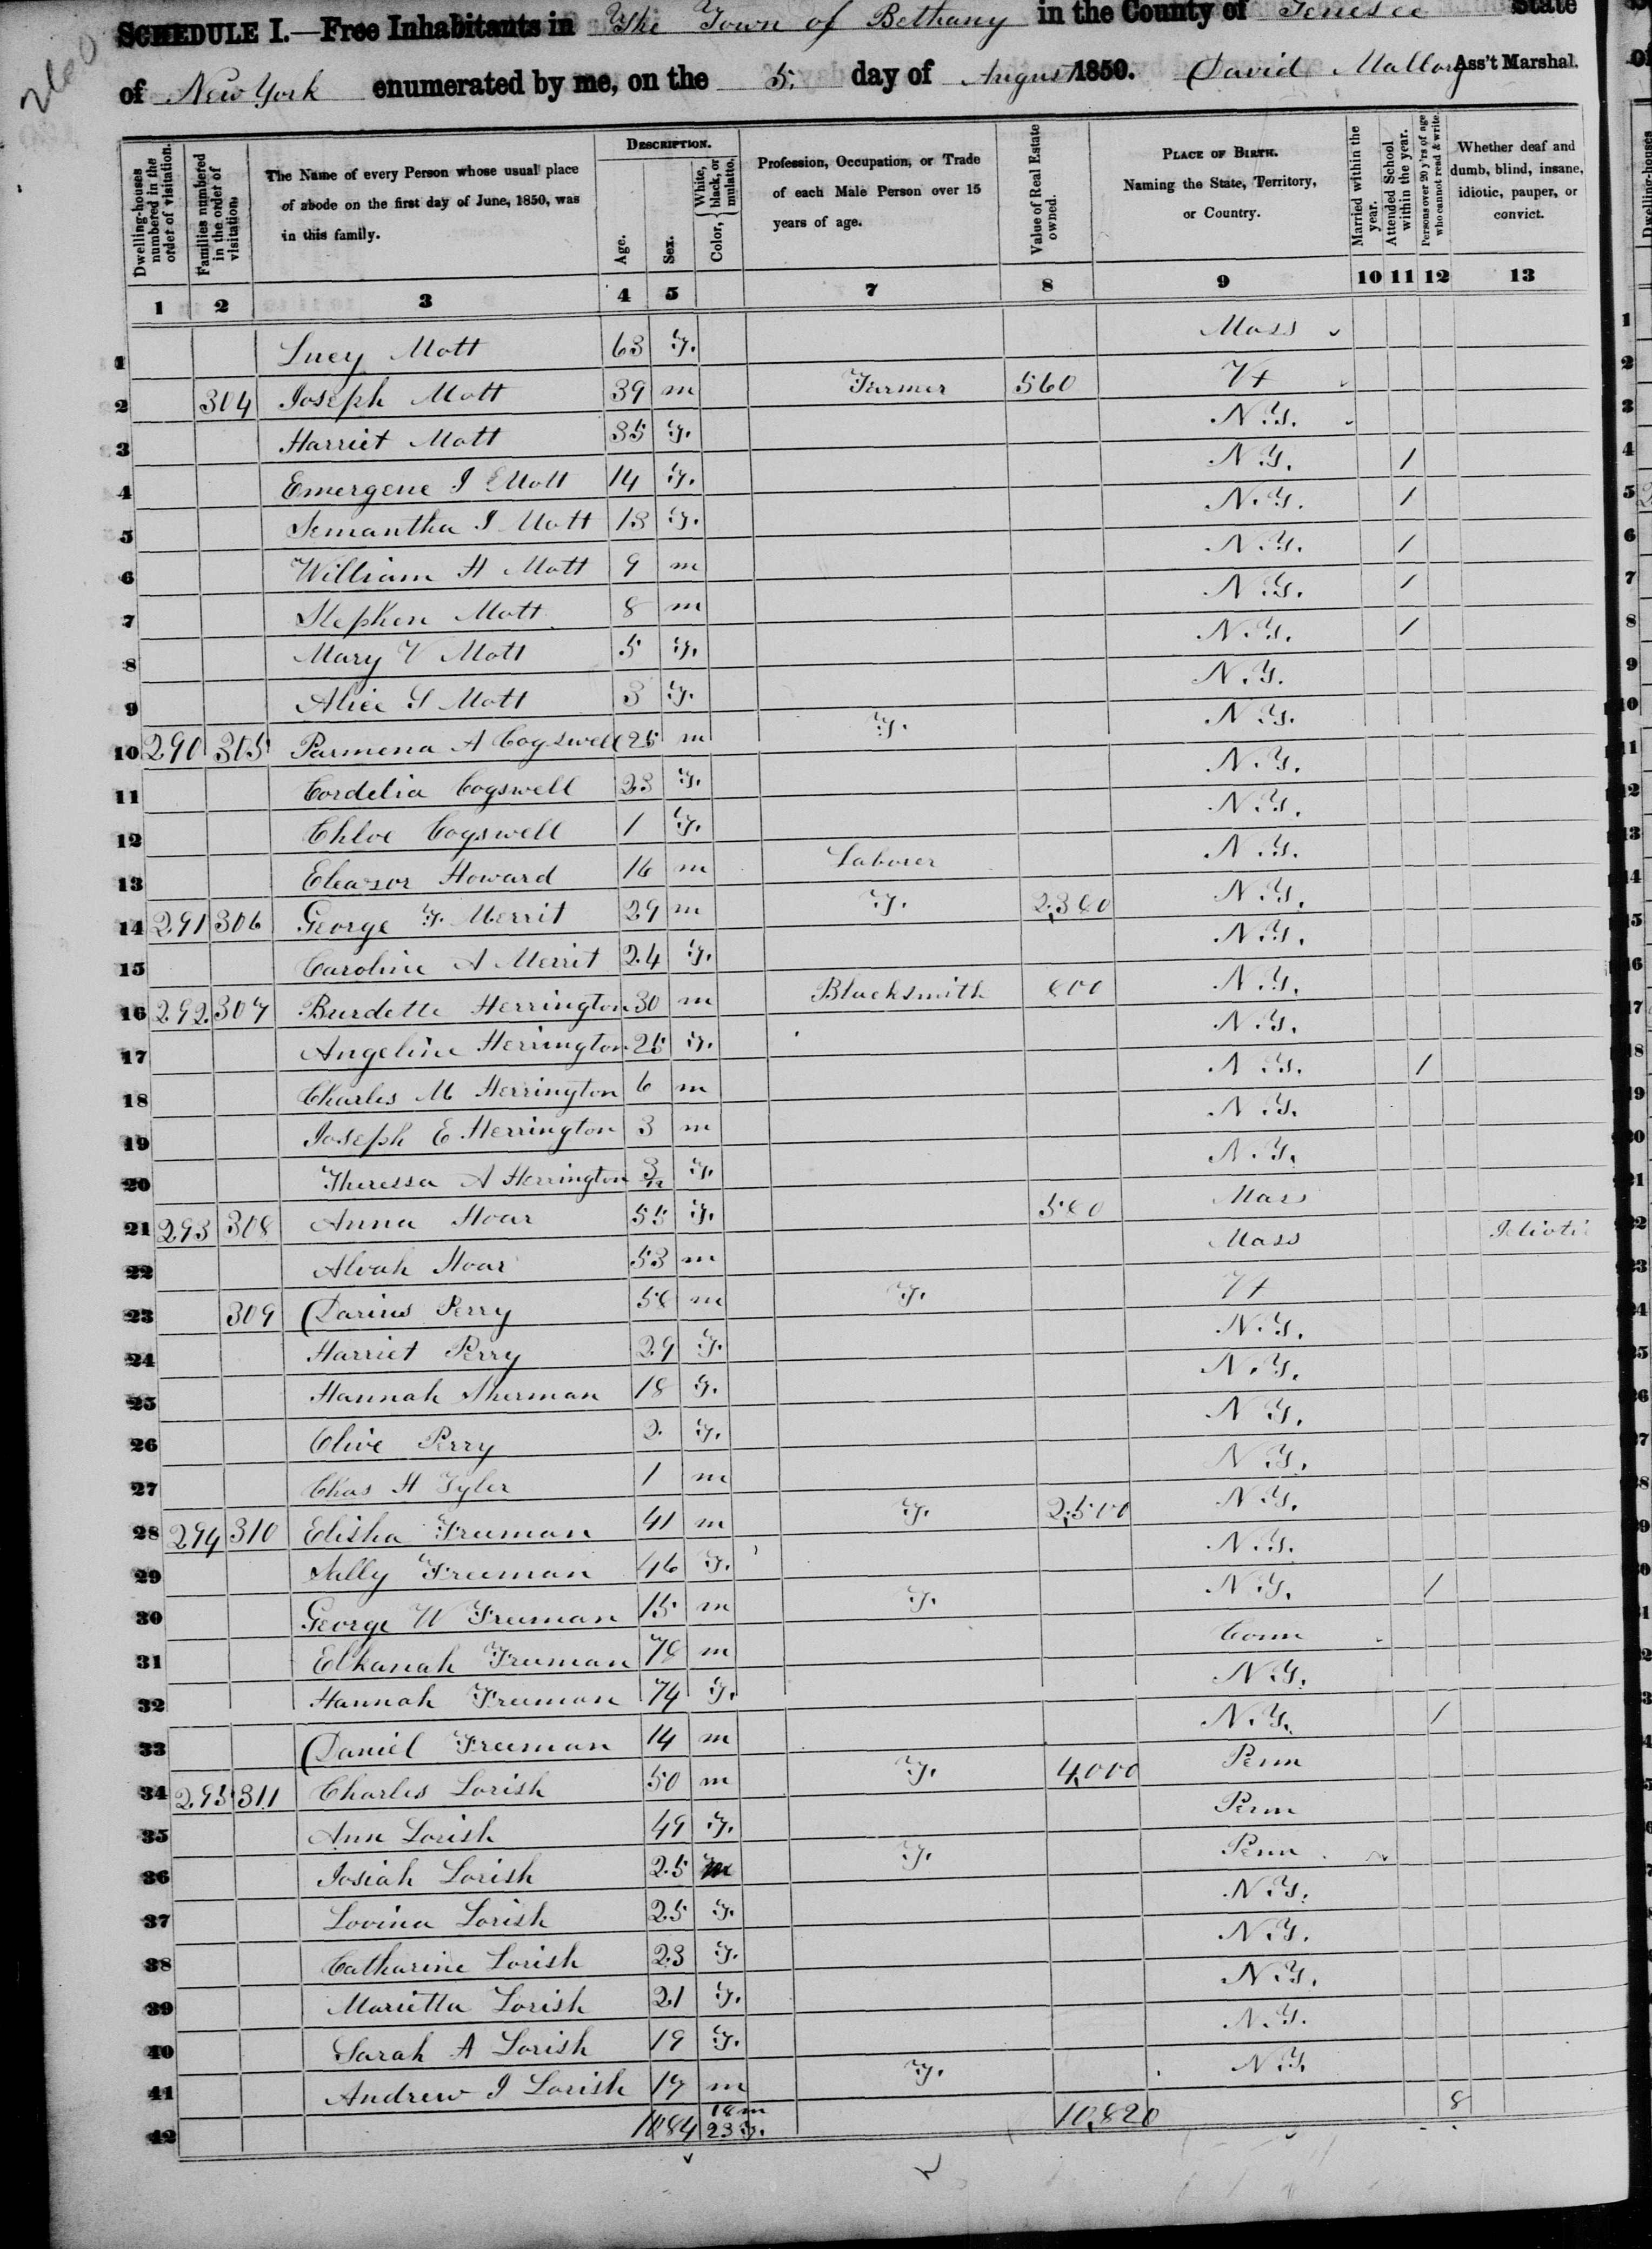 260
SCHEDULE I.—Free Inhabitants in The Town of Bethany in the County of Genesee State
of New York enumerated by me, on the 5. day of August 1850. David Mallory Ass't Marshal.
Dwelling-houses numbered in the order of visitation.
Families numbered in the order of visitation.
The Name of every Person whose usual place of abode on the first day of June, 1850, was in this family.
DESCRIPTION.
Age.
Sex.
Color, { White, black, or mulatto.
Profession, Occupation, or Trade of each Male Person over 15 years of age.
Value of Real Estate owned.
PLACE OF BIRTH. Naming the State, Territory, or Country.
Married within the year.
Attended School within the year.
Persons over 20 y'rs of age who cannot read & write.
Whether deaf and dumb, blind, insane, idiotic, pauper, or convict.
1 2 3 4 5 7 8 9 10 11 12 13
1 Lucy Mott 63 F. Mass
2 304 Joseph Mott 39 m Farmer 560 Vt
3 Harriet Mott 35 F. N.Y.
4 Emergene J Mott 14 F. N.Y. 1
5 Semantha J Mott 13 F. N.Y. 1
6 William H Mott 9 m N.Y. 1
7 Stephen Mott 8 m N.Y. 1
8 Mary V Mott 5 F. N.Y. 1
9 Alice S Mott 3 F. N.Y.
10 290 305 Parmena A Cogswell 25 m F. N.Y.
11 Cordelia Cogswell 23 F. N.Y.
12 Chloe Cogswell 1 F. N.Y.
13 Eleazor Howard 16 m Laborer N.Y.
14 291 306 George F. Merrit 29 m F. N.Y.
15 Caroline A Merrit 24 F. N.Y.
16 292 307 Burdette Herrington 30 m Blacksmith N.Y.
17 Angeline Herrington 25 F. N.Y.
18 Charles M Herrington 6 m N.Y. 1
19 Joseph E Herrington 3 m N.Y.
20 Theressa A Herrington 3/12 F. N.Y.
21 293 308 Anna Hoar 55 F. Mass
22 Alvah Hoar 53 m Mass Idiotic
23 309 Darius Perry m F. Vt
24 Harriet Perry 29 F. N.Y.
25 Hannah Sherman 18 F. N.Y.
26 Olive Perry 2 F. N.Y.
27 Chas H Tyler 1 m N.Y.
28 294 310 Elisha Freeman 41 m F. 2,500 N.Y.
29 Sally Freeman 46 F. N.Y.
30 George W Freeman 15 m F. N.Y. 1
31 Elkanah Freeman 78 m Conn
32 Hannah Freeman 74 F. N.Y.
33 Daniel Freeman 14 m N.Y. 1
34 295 311 Charles Lorish 50 m F. 4,000 Penn
35 Ann Lorish 49 F. Penn
36 Josiah Lorish 25 m F. Penn
37 Lovina Lorish 25 F. N.Y.
38 Catharine Lorish 23 F. N.Y.
39 Marietta Lorish 21 F. N.Y.
40 Sarah A Lorish 19 F. N.Y.
41 Andrew J Lorish 17 m F. N.Y
42 1084 18 m 23 F. 10,820 8